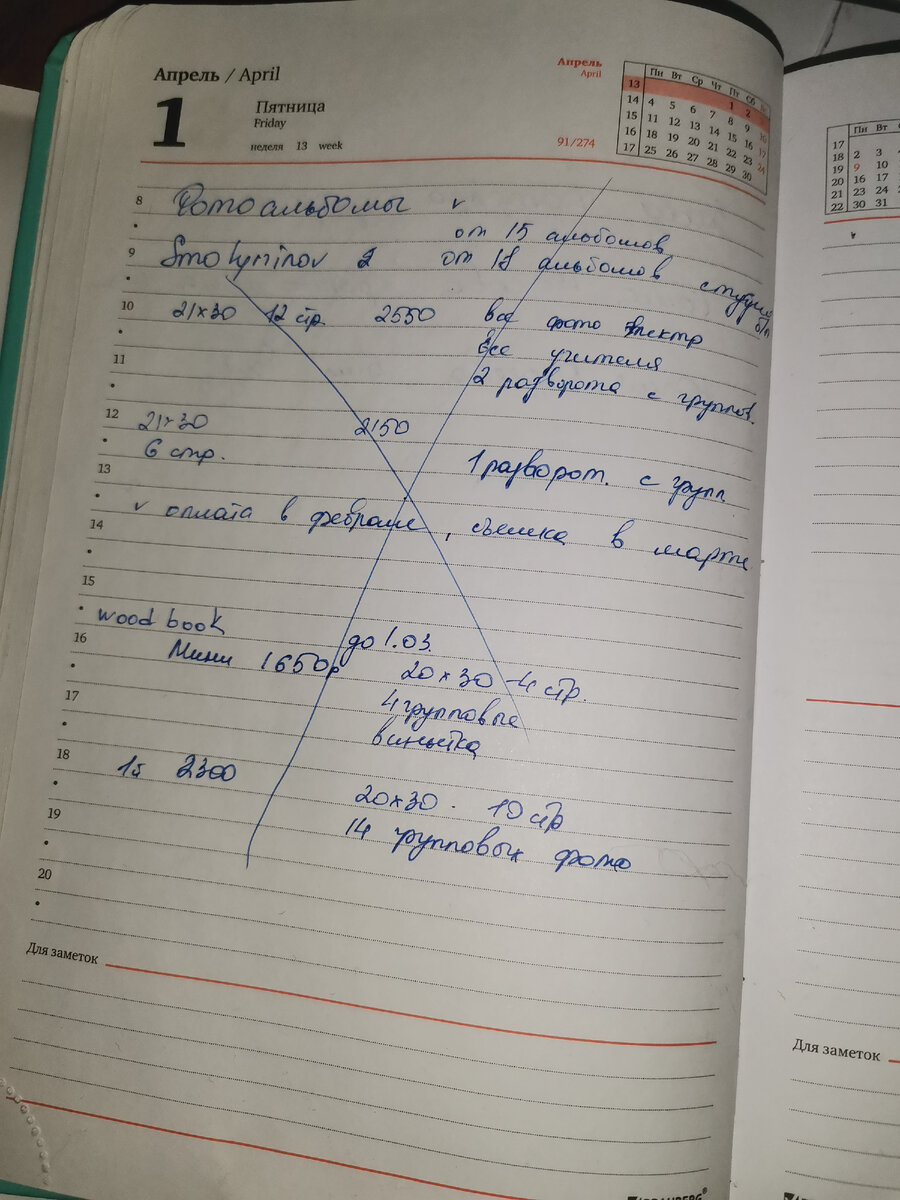 Апрель / April
1
Пятница
Friday
неделя 13 week
Апрель
April
91/274
Пн Вт Ср Чт Пт Сб Вс
13 1 2
14 4 5 6 7 8 9 10
15 11 12 13 14 15 16 17
16 18 19 20 21 22 23 24
17 25 26 27 28 29 30
8 Фотоальбомы ✓
от 15 альбомов
9 2 от 18 альбомов студия
10 21×30 12 стр. 2550 все фото электр б/п
все учителя
11
2 разворота с группов.
12 21×30 2150
6 стр.
1 разворот. с групп
13
✓ оплата в феврале, съемка в марте
14
15
wood book
16 до 1.03.
Мини 1650р 20×30 - 4 стр.
17 4 групповые
виньетка
18 2300
20×30 - 10 стр
19 14 групповых фото
20
Для заметок
Пн Вт
17
18 2 3
19 9 10
20 16 17
21 23 24
22 30 31
Для заметок